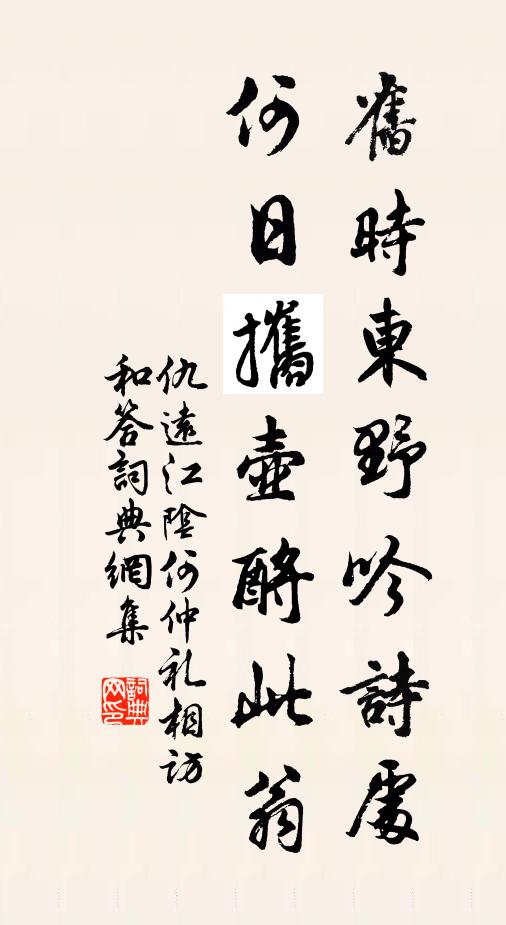 舊時東野吟詩處
何日攜壺酹此翁
仇遠江陰何仲礼相訪
和答詞典網集
詞典网印